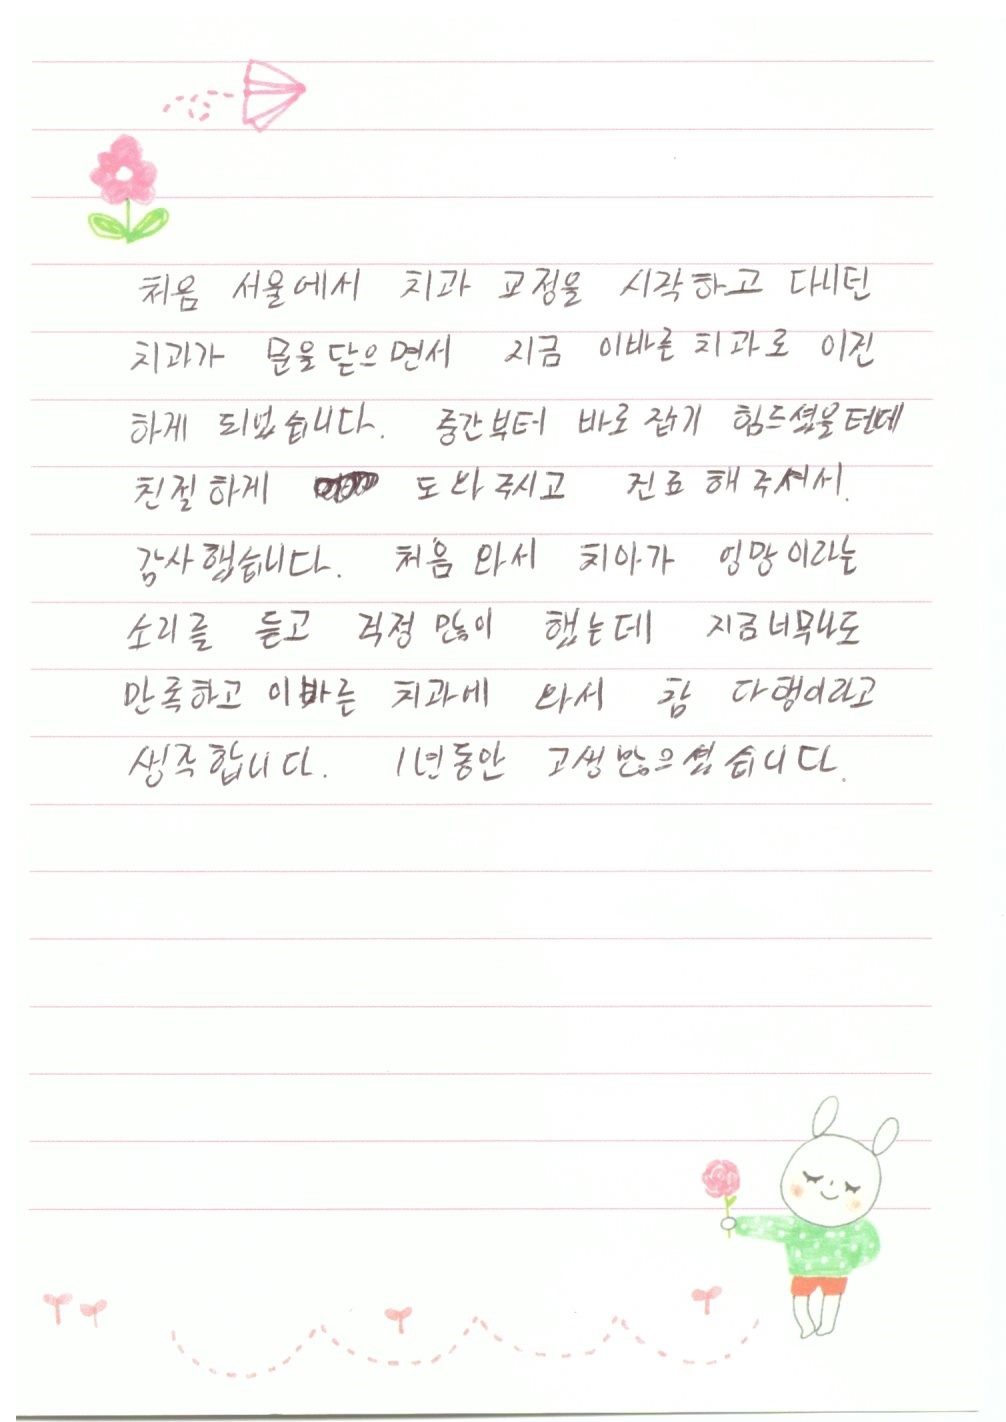 처음 서울에서 치과 교정을 시작하고 다니던
치과가 문을 닫으면서 지금 이바른치과로 이전
하게 되었습니다. 중간부터 바로잡기 힘드셨을텐데
친절하게 도와주시고 진료해주셔서.
감사했습니다. 처음 와서 치아가 엉망이라는
소리를 듣고 걱정 많이 했는데 지금 너무나도
만족하고 이바른 치과에 와서 참 다행이라고
생각합니다. 1년동안 고생많으셨습니다.